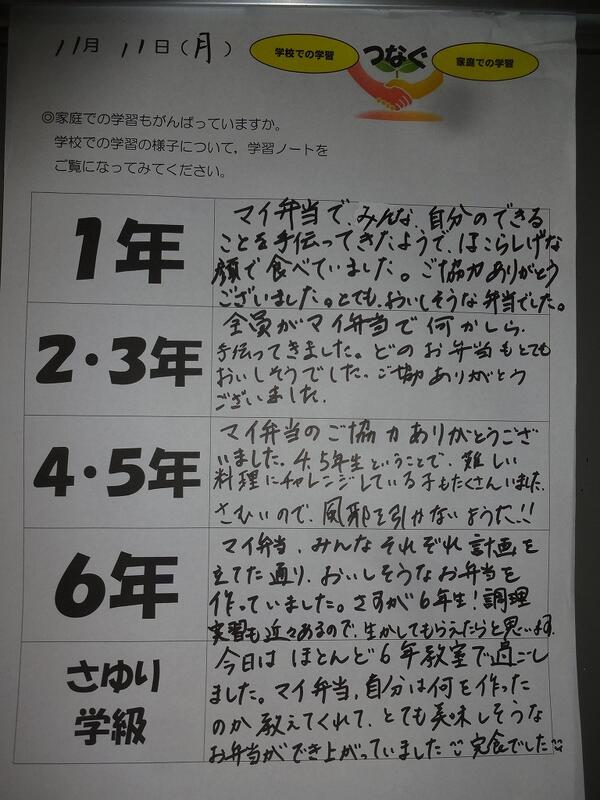 11月 11日(月)
学校での学習 つなぐ 家庭での学習
◎家庭での学習もがんばっていますか。
学校での学習の様子について,学習ノートを
ご覧になってみてください。
1年
マイ弁当で、みんな、自分のできる
ことを手伝ってきたようで、ほこらしげな
顔で食べていました。ご協力ありがとう
ございました。とても、おいしそうな弁当でした。
2・3年
全員がマイ弁当で何かしら、
手伝ってきました。どのお弁当もとても
おいしそうでした。ご協力ありがとう
ございました。
4・5年
マイ弁当のご協力ありがとうござ
いました。4.5年生ということで、難しい
料理にチャレンジしている子もたくさんいました。
さむいので、風邪を引かないように!!
6年
マイ弁当、みんなそれぞれ計画を
立てた通り、おいしそうなお弁当を
作っていました。さすが6年生!調理
実習も近々あるので、生かしてもらえたらと思います。
さゆり
学級
今日はほとんど6年教室で過ごし
ました。マイ弁当、自分は何を作った
のか教えてくれて、とても美味しそうな
お弁当ができ上がっていました 完食でした